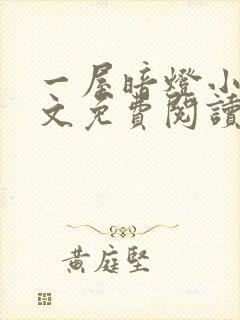 一屋暗燈小
文免費閱讀
黃庭堅